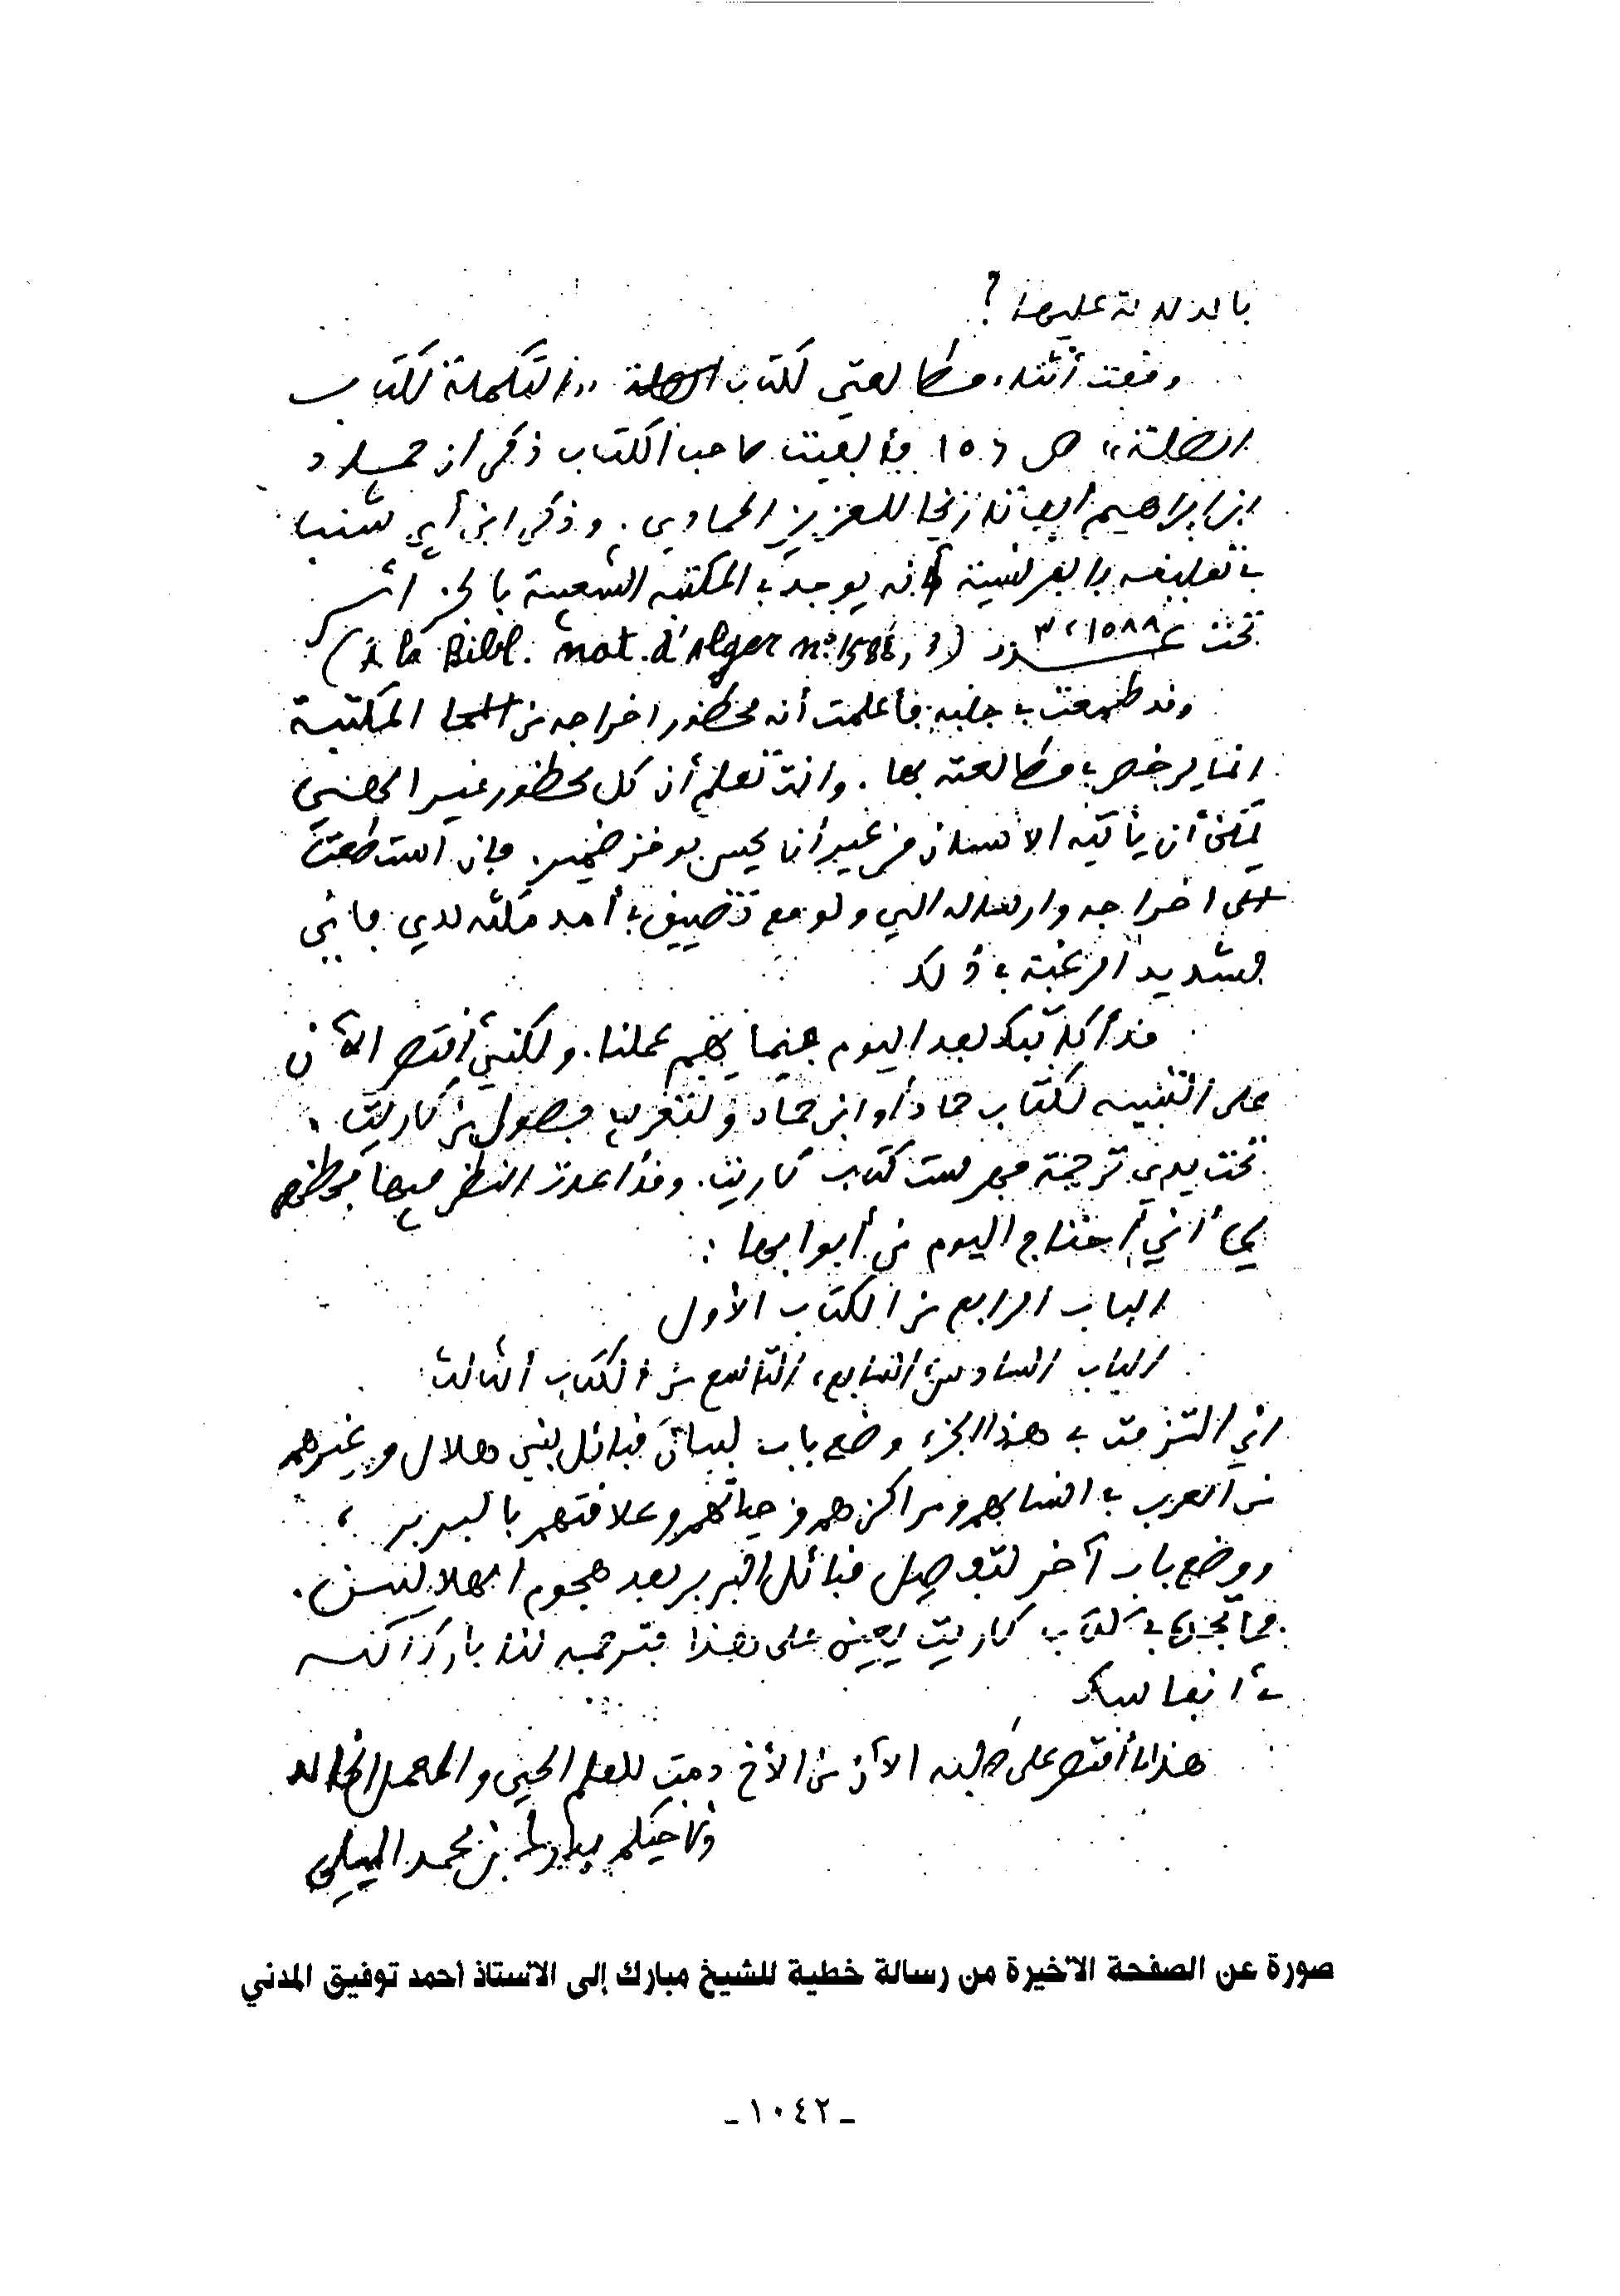 بالدلالة عليها؟
وقعت أثناء مطالعتي لكتاب الصلة «التكملة لكتاب
الصلة» ص ١٥٦ فألفيت صاحب الكتاب ذكر أن حماد
ابن ابراهيم ألف تاريخا للعزيز الحمادي. وذكر ابن أبي شنب
في تعليقه بالفرنسية أنه يوجد في المكتبة الشعبية بالجزائر
تحت عدد ٣،١٥٨٨ (A la Bibl. nat. d'Alger n° 1588, 3)
وقد طمعت في جلبه فأعلمت أنه محظور اخراجه من المكتبة
انما يرخص في مطالعته بها. وانت تعلم أن كل محظور غير الجنسي
يمكن أن يأتيه الانسان من غير أن يحس بوخز ضمير. فإن استطعت
اخراجه وارساله الي ولو مع تضييق في أمد مكثه لدي فإني
شديد الرغبة في ذلك
قد أكاتبك بعد اليوم فيما يهم عملنا. ولكني أقتصر الآن
على التنبيه لكتاب حماد أو ابن حماد ولتعريب فصول من كاريت.
تحت يدي ترجمة فهرست كتاب كاريت. وقد أعدت النظر فيها فظهر
لي أني أحتاج اليوم من أبوابها:
الباب الرابع من الكتاب الأول
الباب السادس، السابع، التاسع من الكتاب الثالث
اني التزمت في هذا الجزء وضع باب لبيان قبائل بني هلال وغيرهم
من العرب في انسابهم ومراكزهم وحياتهم وعلاقتهم بالبربر،
ووضع باب آخر لتفصيل قبائل البربر بعد هجوم الهلاليين.
فما تجده في كتاب كاريت يعين على هذا فترجمه لنا بارك الله
في أنفاسك
هذا ما أقتصر على طلبه الآن من الأخ دمت للعلم الحي والعمل الخالد
ولأخيكم مبارك بن محمد الميلي
صورة عن الصفحة الأخيرة من رسالة خطية للشيخ مبارك إلى الأستاذ أحمد توفيق المدني
ـ ١٠٤٢ ـ